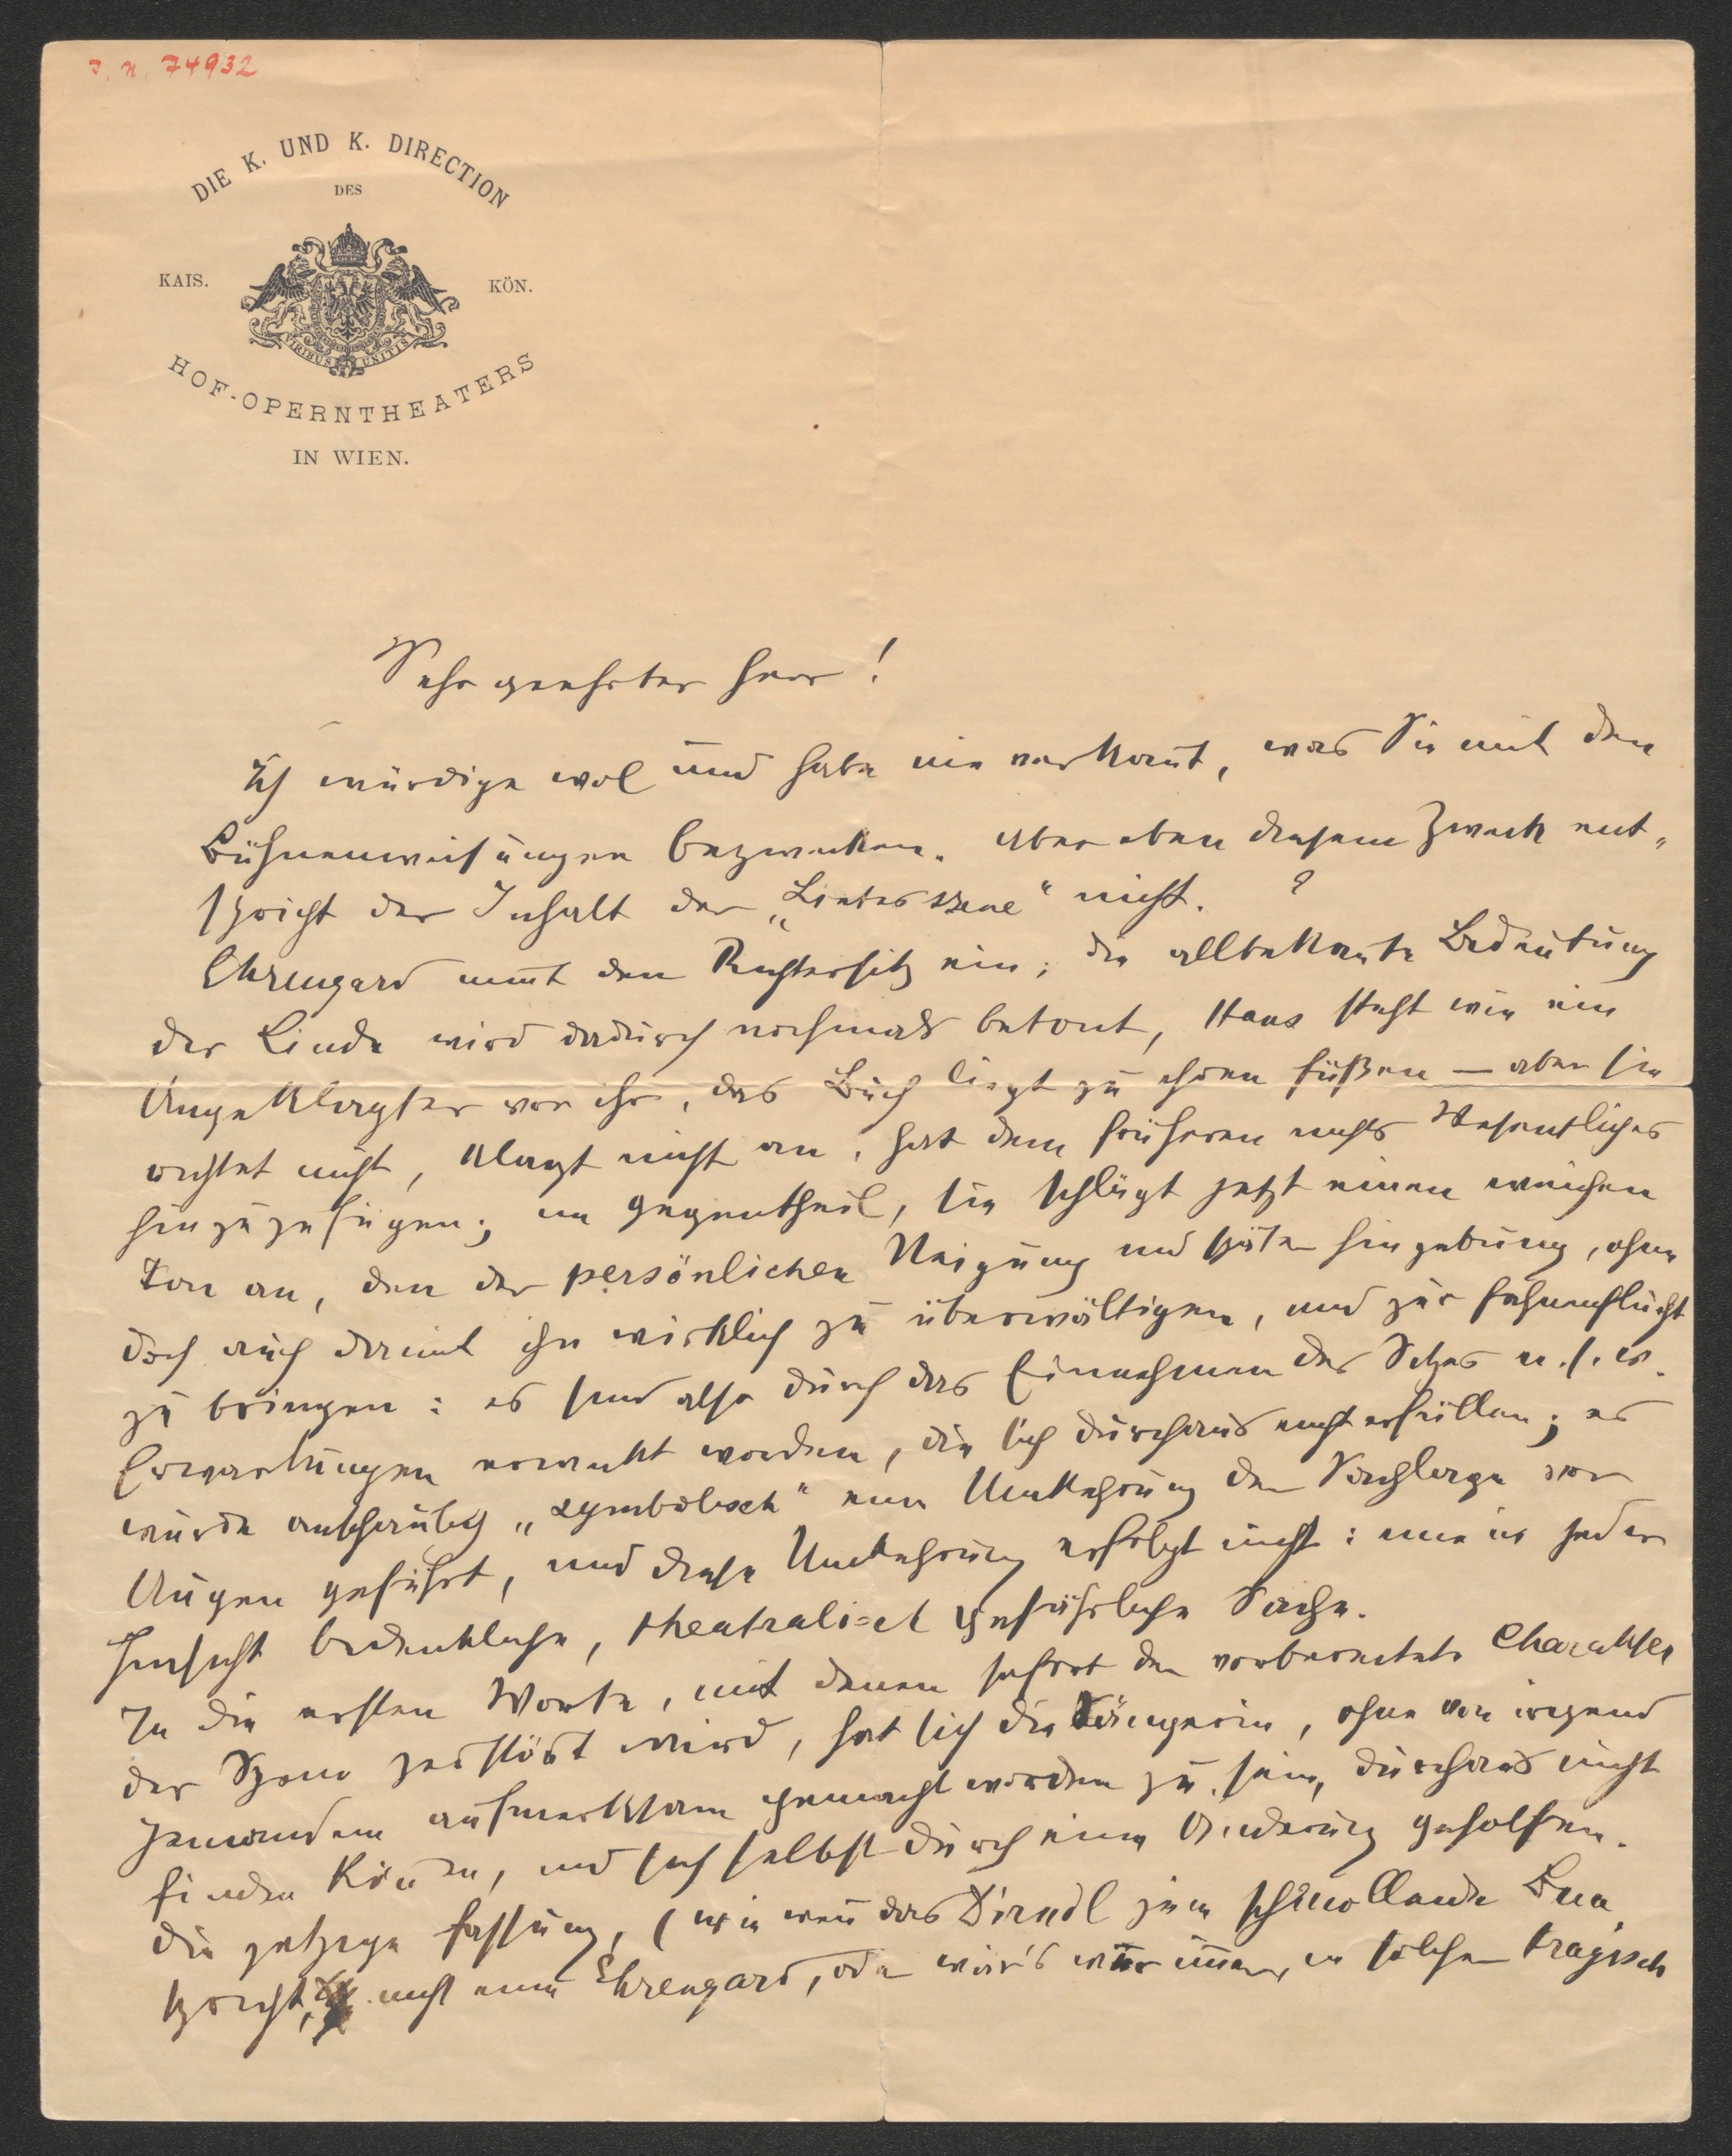 J. N. 74932
DIE K. UND K. DIRECTION
DES
KAIS. KÖN.
VIRIBUS UNITIS
HOF-OPERNTHEATERS
IN WIEN.
Sehr geehrter Herr!
Ich würdige wol und habe nie verkannt, was Sie mit den
Bühnenweisungen bezwecken. Aber eben diesem Zweck ent-
spricht der Inhalt der „Lindesszene" nicht.
Ehrengard nimt den Richtersitz ein; die allbekannte Bedeutung
der Linde wird dadurch nochmals betont, Hans steht wie ein
Angeklagter vor ihr, das Buch liegt zu ihren Füßen — aber sie
richtet nicht, klagt nicht an, hat dem früheren nichts Wesentliches
hinzuzufügen; im Gegentheil, sie schlägt jetzt einen weichen
Ton an, den der persönlichen Neigung und später Hingebung, ohne
doch auch damit ihn wirklich zu überwältigen, und zur Fahnenflucht
zu bringen: es sind also durch das Einnehmen des Sitzes u.s.w.
Erwartungen erweckt worden, die sich durchaus nicht erfüllen; es
wurde anschaulich „symbolisch" eine Umkehrung der Sachlage vor
Augen geführt, und diese Umkehrung erfolgt nicht: eine in jeder
Hinsicht bedenkliche, theatralisch gefährliche Sache.
In die ersten Worte, mit denen sofort der vorbereitete Charakter
der Szene zerstört wird, hat sich die Sängerin, ohne von irgend
jemandem aufmerksam gemacht worden zu sein, durchaus nicht
finden können, und sich selbst durch eine Änderung geholfen.
Die jetzige Fassung, (wie wenn das Dirndl zum schmollenden Bua
spricht, nicht eine Ehrengard, oder wär's wer immer, in solcher tragisch